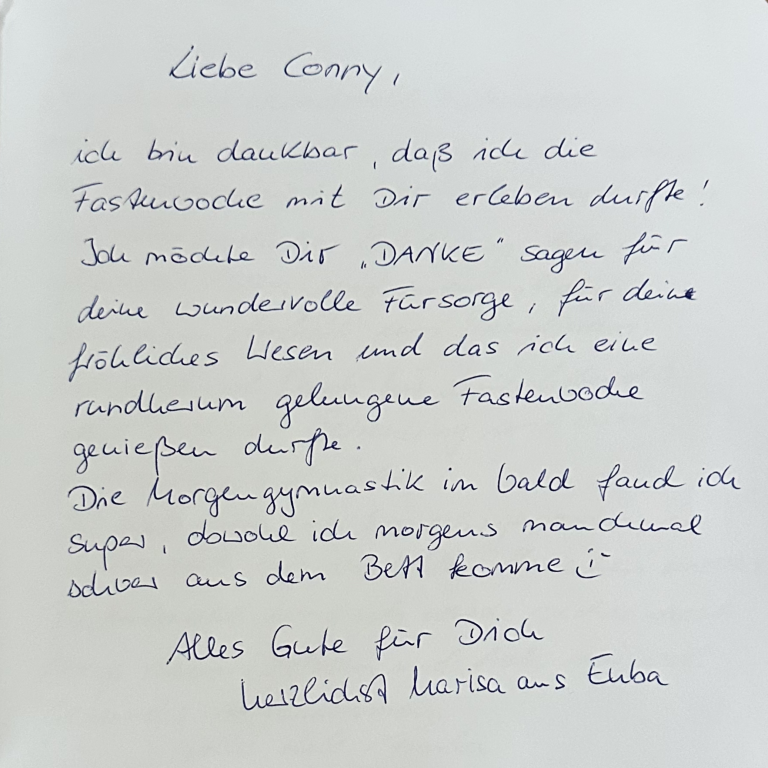 Liebe Conny,
ich bin dankbar, daß ich die
Fastenwoche mit Dir erleben durfte!
Ich möchte Dir „DANKE" sagen für
deine wundervolle Fürsorge, für deine
fröhliches Wesen und das ich eine
rundherum gelungene Fastenwoche
genießen durfte.
Die Morgengymnastik im Wald fand ich
super, obwohl ich morgens manchmal
schwer aus dem Bett komme :-)
Alles Gute für Dich
herzlichst Marisa aus Euba